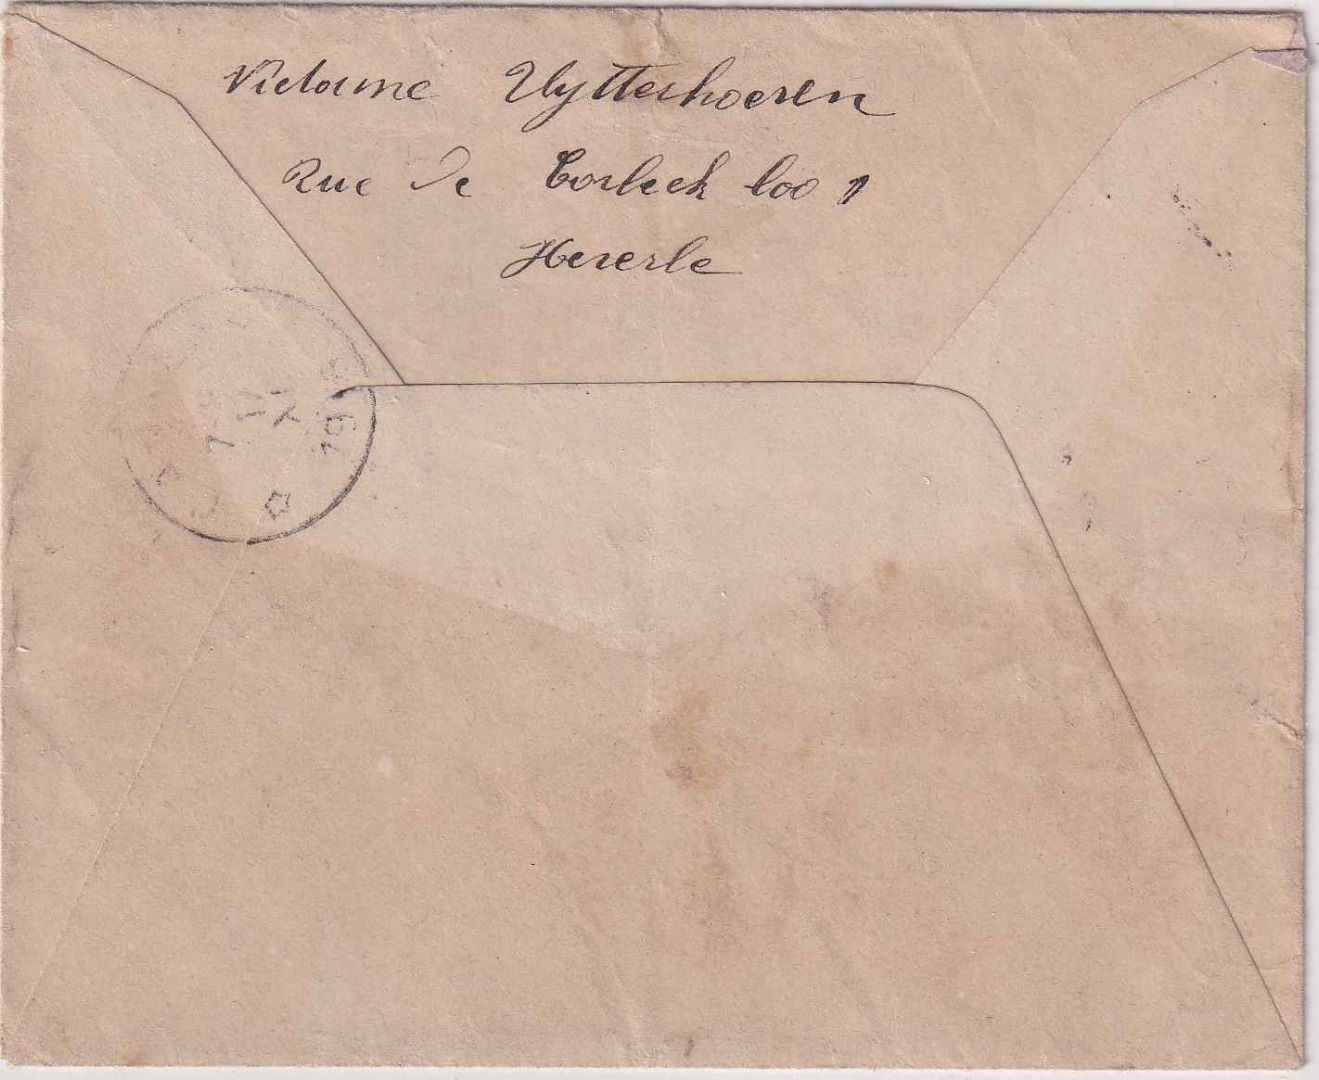 Victorine Uytterhoeven
Rue de Corbeek loo 1
Heverle
19